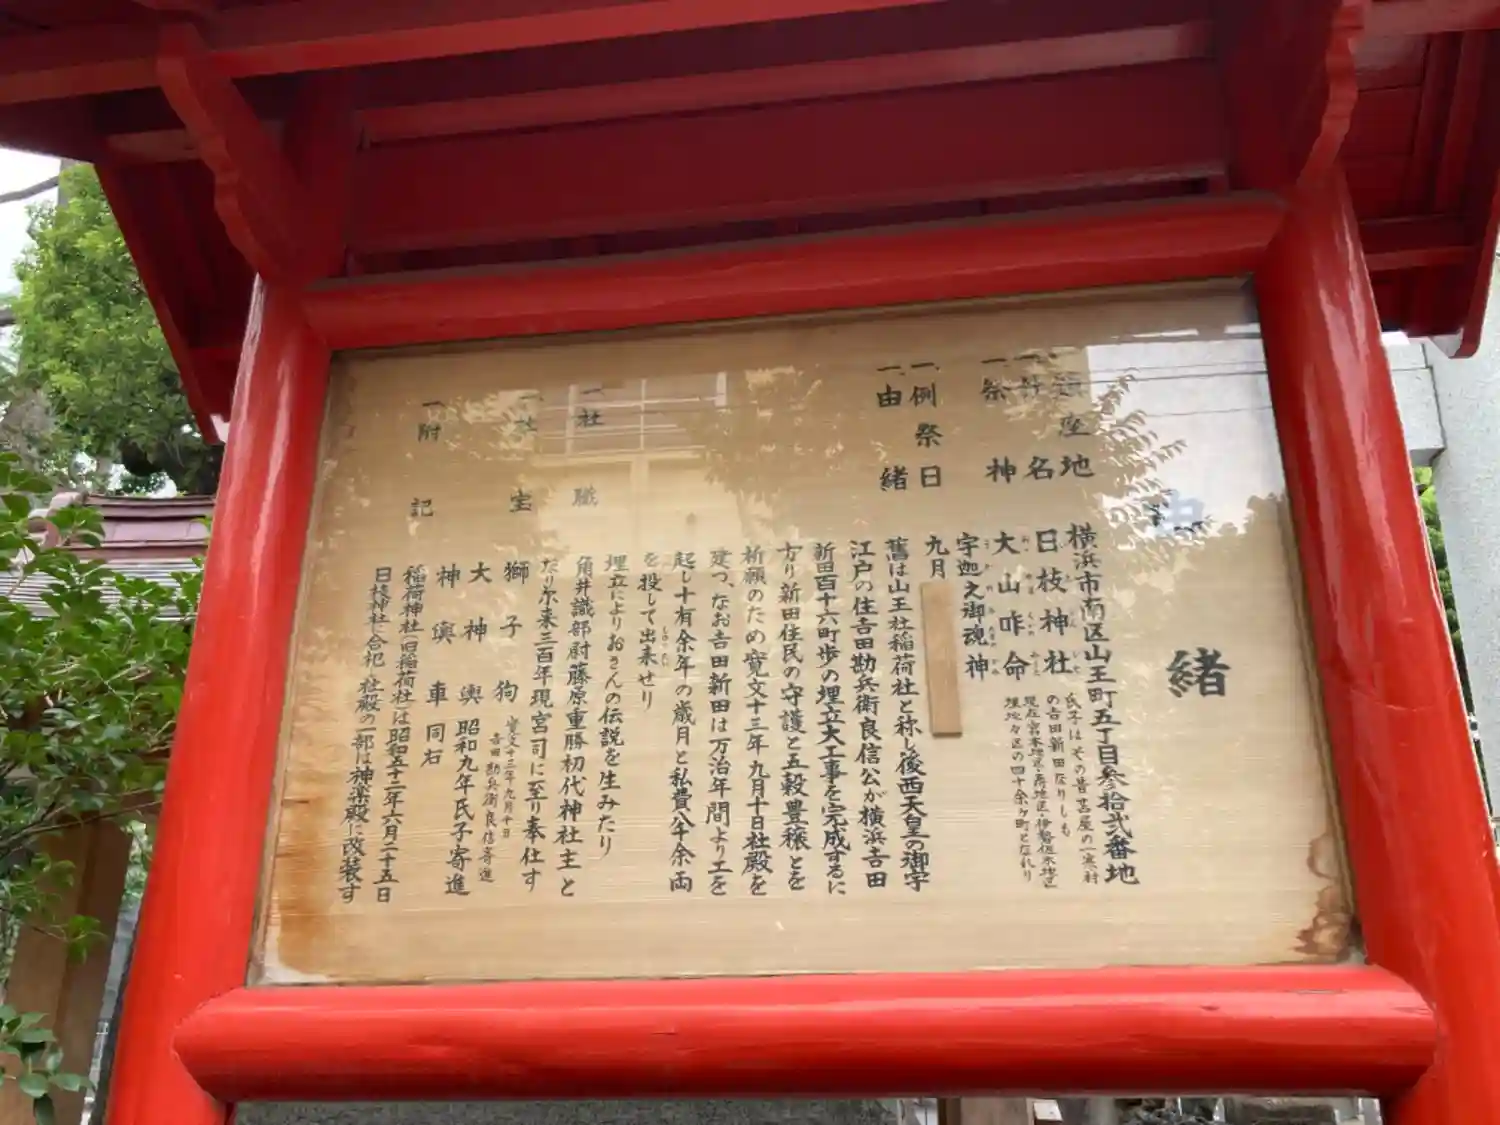 由緒
一、鎮座地 横浜市南区山王町五丁目参拾弐番地
一、社名 日枝神社 氏子はその昔苫屋の一寒村
の吉田新田なりしも
現在宮本地区・寿地区・伊勢佐木地区
埋地々区の四十余ヶ町となれり
一、祭神 大山咋命
宇迦之御魂神
一、例祭日 九月
一、由緒 舊は山王社稲荷社と称し後西天皇の御宇
江戸の住吉田勘兵衛良信公が横浜吉田
新田百十六町歩の埋立大工事を完成するに
方り新田住民の守護と五穀豊穣とを
祈願のため寛文十三年九月十日社殿を
建つ、なお吉田新田は万治年間より工を
起し十有余年の歳月と私費八千余両
を投して出来せり
埋立によりおさんの伝説を生みたり
一、社職 角井識部尉藤原重勝初代神社主と
なり尓来三百年現宮司に至り奉仕す
一、社宝 獅子狗 寛文十三年九月十日
吉田勘兵衛良信寄進
大神輿 昭和九年氏子寄進
神輿車 同右
一、附記 稲荷神社(旧稲荷社)は昭和五十二年六月二十五日
日枝神社に合祀、社殿の一部は神楽殿に改装す